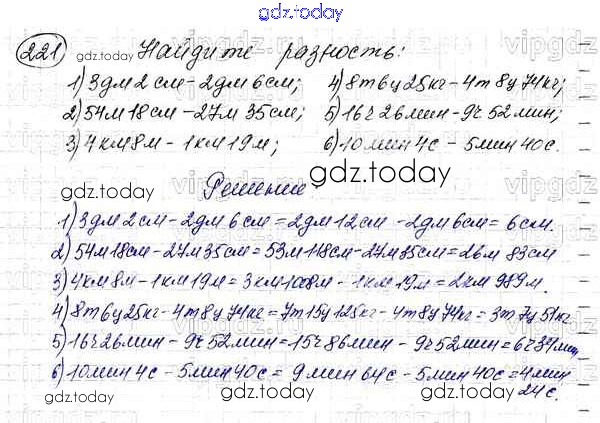 gdz.today
221 gdz.today Найдите разность:
1) 3дм 2 см - 2дм 6см; 4) 8т 6ц 25кг - 4т 8ц 74кг;
2) 54м 18см - 27м 35см; 5) 16ч 26мин - 9ч 52мин;
3) 4км 8м - 1км 19м; 6) 10мин 4с - 5мин 40с.
gdz.today
gdz.today Решение:
1) 3дм 2см - 2дм 6см = 2дм 12см - 2дм 6см = 6см.
2) 54м 18см - 27м 35см = 53м 118см - 27м 35см = 26м 83см
3) 4км 8м - 1км 19м = 3км 1008м - 1км 19м = 2км 989м.
4) 8т 6ц 25кг - 4т 8ц 74кг = 7т 15ц 125кг - 4т 8ц 74кг = 3т 7ц 51кг.
5) 16ч 26мин - 9ч 52мин = 15ч 86мин - 9ч 52мин = 6ч 34мин
6) 10мин 4с - 5мин 40с = 9мин 64с - 5мин 40с = 4мин
24с.
gdz.today gdz.today